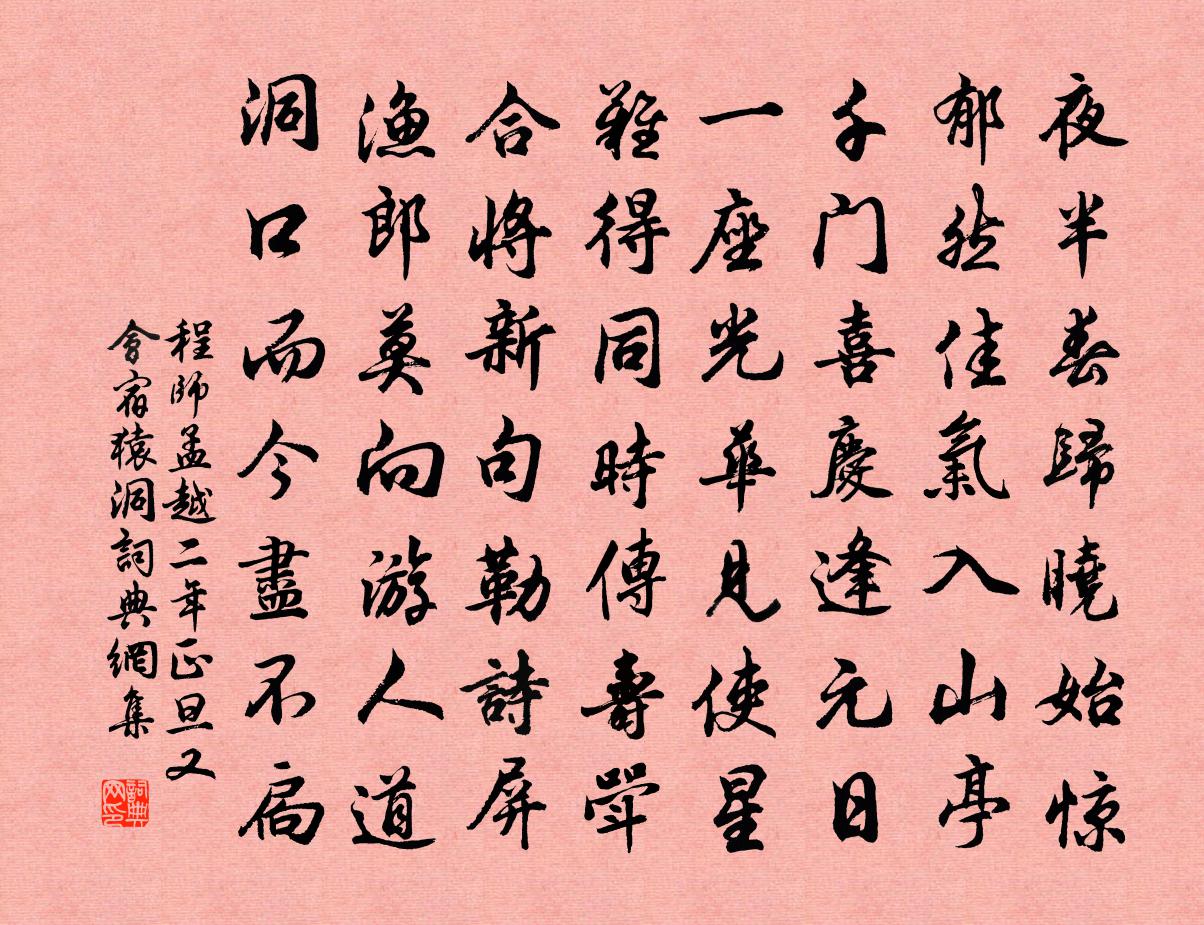 夜半春歸曉始惊
郁然佳氣入山亭
千门喜慶逢元日
一座光華見使星
難得同時傳壽斝
合將新句勒詩屏
漁郎莫向游人道
洞口而今盡不扃
程師孟越二年正旦又
會宿猿洞詞典網集
詞典
网印